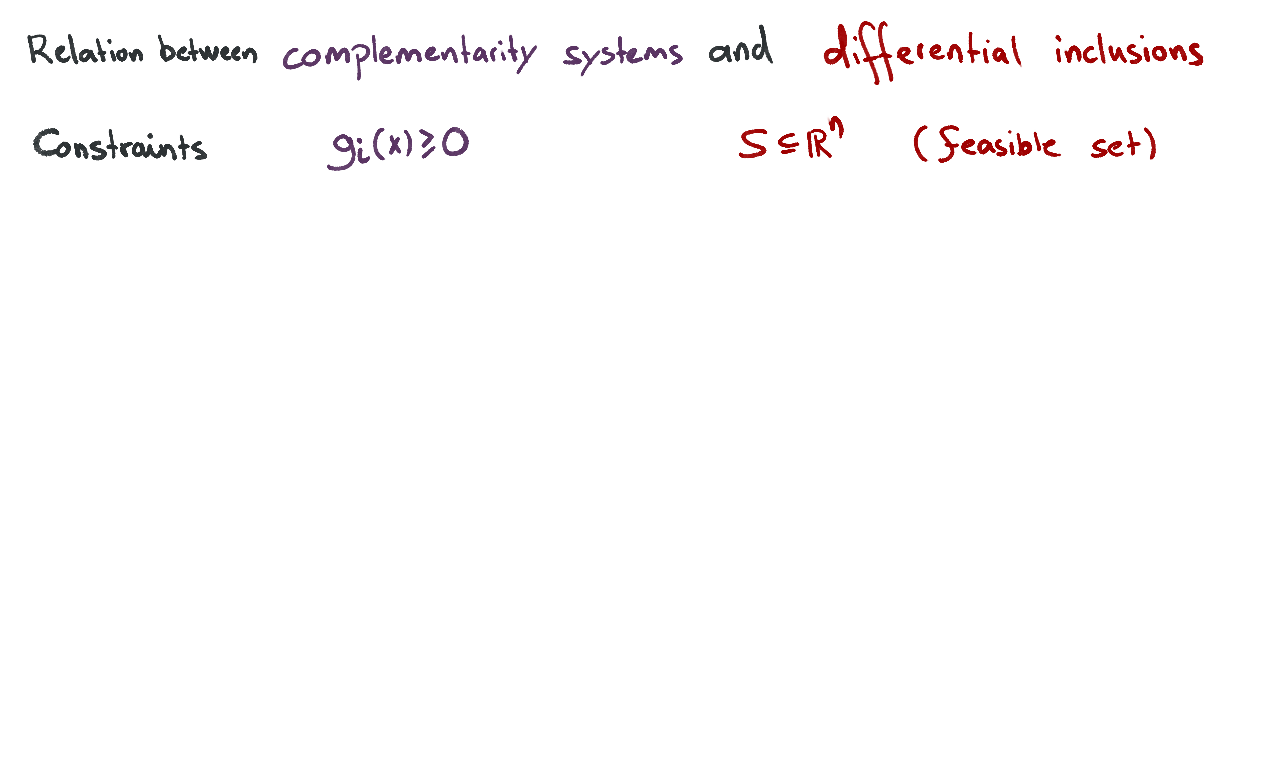 Relation between complementarity systems and differential inclusions
Constraints gᵢ(x) ≥ 0 S ⊆ ℝⁿ (feasible set)